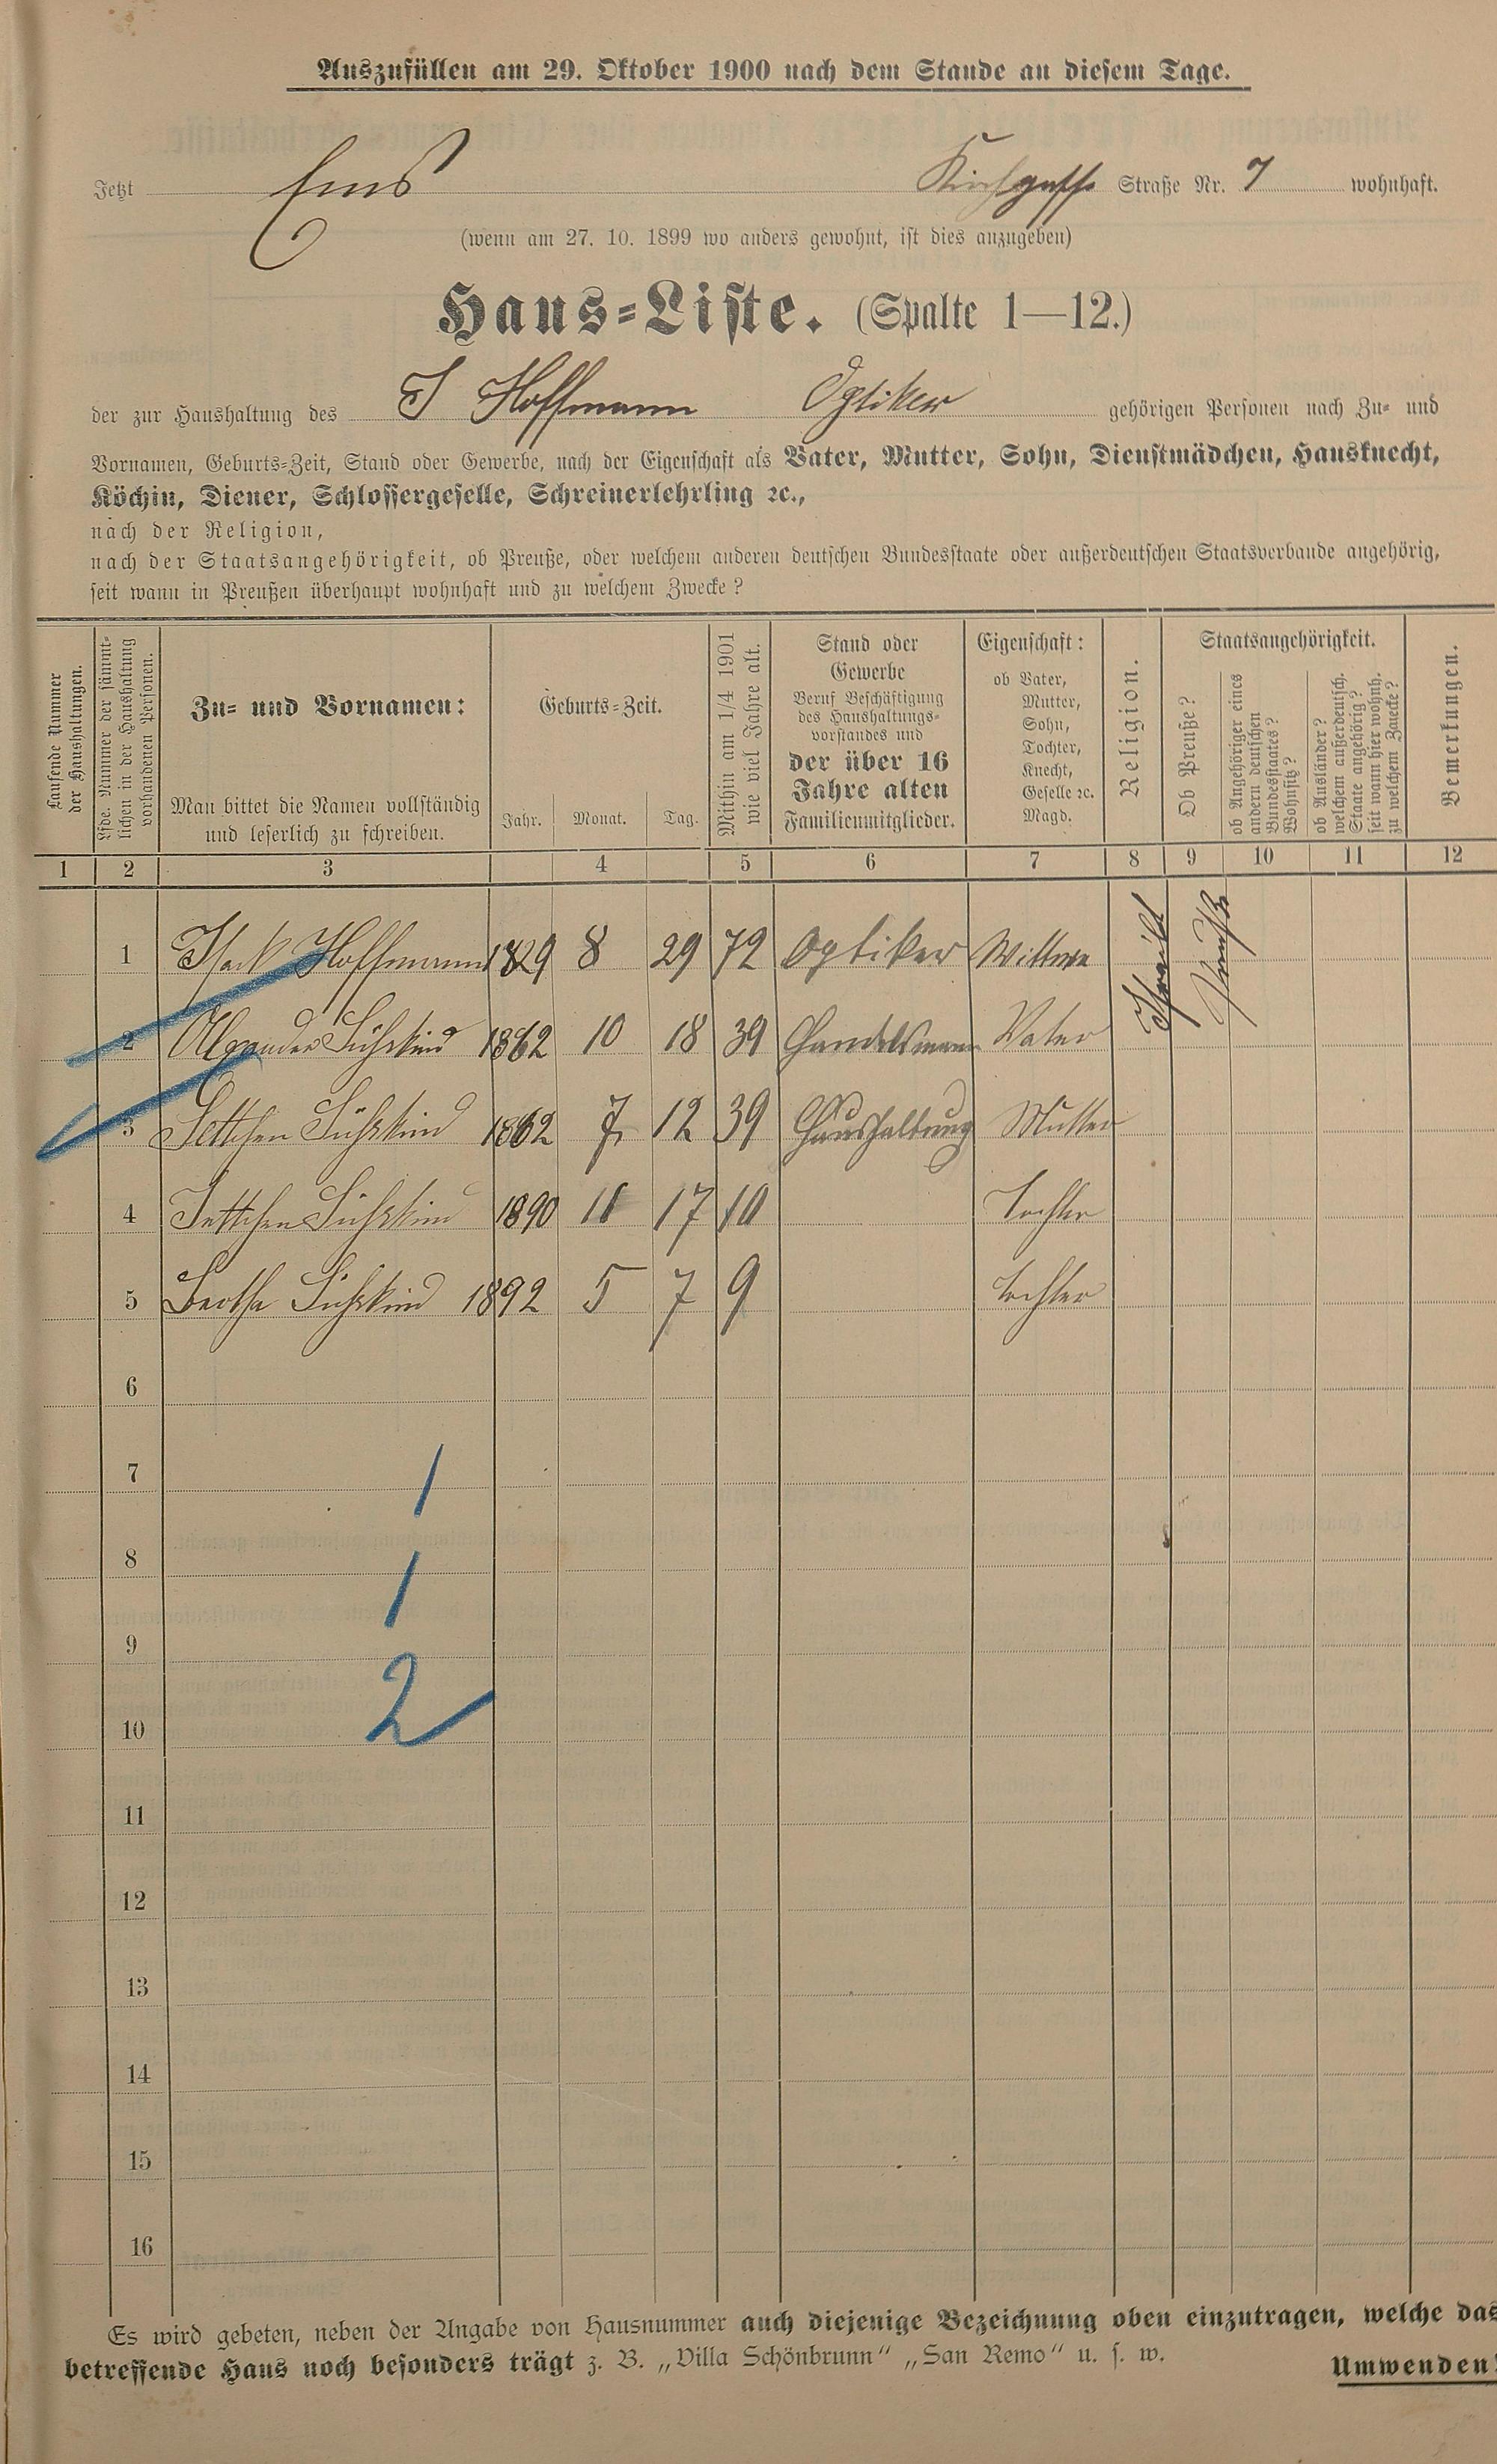 Auszufüllen am 29. Oktober 1900 nach dem Stande an diesem Tage.
Jetzt Ems Kirchgasse Straße Nr. 7 wohnhaft.
(wenn am 27. 10. 1899 wo anders gewohnt, ist dies anzugeben)
Haus-Liste. (Spalte 1—12.)
der zur Haushaltung des J Hoffmann Optiker gehörigen Personen nach Zu- und
Vornamen, Geburts-Zeit, Stand oder Gewerbe, nach der Eigenschaft als Vater, Mutter, Sohn, Dienstmädchen, Hausknecht,
Köchin, Diener, Schlossergeselle, Schreinerlehrling ꝛc.,
nach der Religion,
nach der Staatsangehörigkeit, ob Preuße, oder welchem anderen deutschen Bundesstaate oder außerdeutschen Staatsverbande angehörig,
seit wann in Preußen überhaupt wohnhaft und zu welchem Zwecke?
Laufende Nummer
der Haushaltungen.
Lfde. Nummer der sämmt-
lichen in der Haushaltung
vorhandenen Personen.
Zu- und Vornamen:
Man bittet die Namen vollständig
und leserlich zu schreiben.
Geburts-Zeit.
Jahr. Monat. Tag.
Mithin am 1/4 1901
wie viel Jahre alt.
Stand oder
Gewerbe
Beruf Beschäftigung
des Haushaltungs-
vorstandes und
der über 16
Jahre alten
Familienmitglieder.
Eigenschaft:
ob Vater,
Mutter,
Sohn,
Tochter,
Knecht,
Geselle ꝛc.
Magd.
Religion.
Staatsangehörigkeit.
Ob Preuße?
ob Angehöriger eines
andern deutschen
Bundesstaates?
Wohnsitz?
ob Ausländer?
welchem außerdeutsch.
Staate angehörig?
seit wann hier wohnh.
zu welchem Zwecke?
Bemerkungen.
1 2 3 4 5 6 7 8 9 10 11 12
1 Isack Hoffmann 1829 8 29 72 Optiker Wittwer
2 Alexander Süßkind 1862 10 18 39 Handelsmann Vater
3 Settchen Süßkind 1862 7 12 39 Haushaltung Mutter
4 Jettchen Süßkind 1890 17 10 Tochter
5 Bertha Süßkind 1892 5 7 9 Tochter
Israelit
Preuße
6
7
1
8
1
9
2
10
11
12
13
14
15
16
Es wird gebeten, neben der Angabe von Hausnummer auch diejenige Bezeichnung oben einzutragen, welche das
betreffende Haus noch besonders trägt z. B. „Villa Schönbrunn“ „San Remo“ u. s. w.
Umwenden!